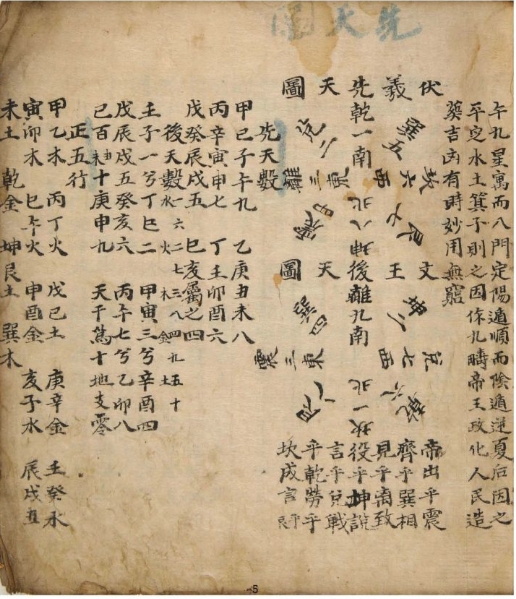 先天圖
午九星寓而八門定陽遁順而陰遁逆夏后因之
平定水土箕子則之因作九疇帝王政化人民造
葬吉凶有時妙用無窮
伏羲先天圖
乾一南
巽五
坎六西
艮七
北八坤
兌二
離三東
震四
文王後天圖
離九南
坤二
兌七西
乾六
北一坎
巽四
震三東
艮八
帝出乎震
齊乎巽相
見乎离致
役乎坤說
言乎兌戰
乎乾勞乎
坎成言乎
先天數
甲己子午九 乙庚丑未八
丙辛寅申七 丁壬卯酉六
戊癸辰戌五 巳亥屬之四
後天數 一六水 二七火 三八木 四九金 五十土
壬子一兮丁巳二 甲寅三兮辛酉四
戊辰戌五癸亥六 丙午七兮乙卯八
己百丑未十庚申九 天干篤十地支零
正五行
甲乙木 丙丁火 戊己土 庚辛金 壬癸水
寅卯木 巳午火 申酉金 亥子水 辰戌丑
未土 乾金 坤艮土 巽木